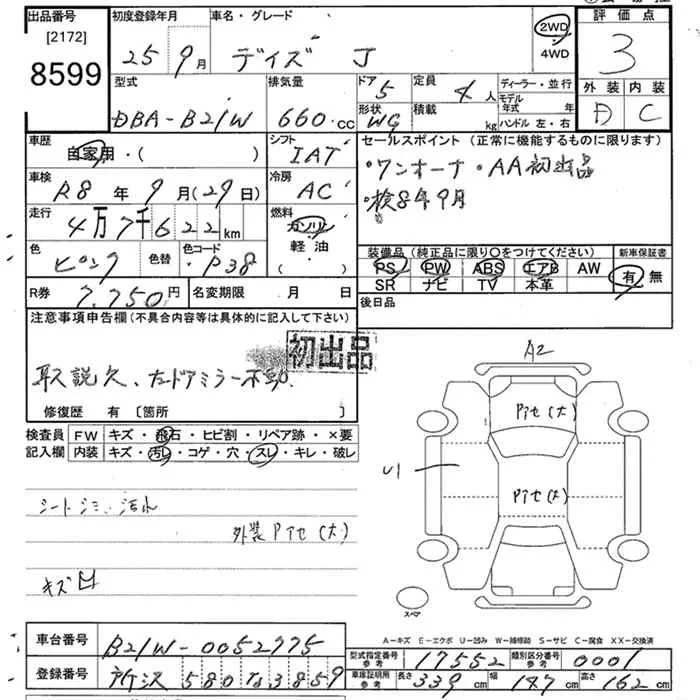 出品番号
[2172]
8599
初度登録年月
25年9月
車名・グレード
デイズ J
2WD
4WD
評価点
3
外装 内装
D C
型式
DBA-B21W
排気量
660 cc
ドア 5
形状 WG
定員 4 人
積載 kg
ディーラー・並行
モデル年式 年
ハンドル 左・右
車歴
自家用・( )
シフト
IAT
セールスポイント (正常に機能するものに限ります)
・ワンオーナ・AA初出品
・検8年9月
車検
R8年 9月(29日)
冷房
AC
走行
4万7千622km
燃料
ガソリン
軽・油
・( )
色 ピンク
色替
色コード ・P38
装備品 (純正品に限り〇をつけてください)
PS PW ABS エアB AW
SR ナビ TV 本革
新車保証書
有 無
R券 7,750円
名変期限 月 日
後日品
注意事項申告欄 (不具合内容等は具体的に記入して下さい)
初出品
取説欠、左ドアミラー不動
修復歴 有 [箇所 ]
検査員
記入欄
FW キズ・飛石・ヒビ割・リペア跡・×要
内装 キズ・汚レ・コゲ・穴・スレ・キレ・破レ
シートシミ・汚れ
外装Picセ(大)
キズ凹
A2
Picセ(大)
Picセ(大)
U1
スペア
A-キズ E-エクボ U-凹み W-補修跡 S-サビ C-腐食 XX-交換済
車台番号 B21W-0052775
型式指定番号 参考 17552
類別区分番号 参考 0001
登録番号 所沢 580 す 3859
車庫証明用 参考 長さ 339 cm 幅 147 cm 高さ 162 cm